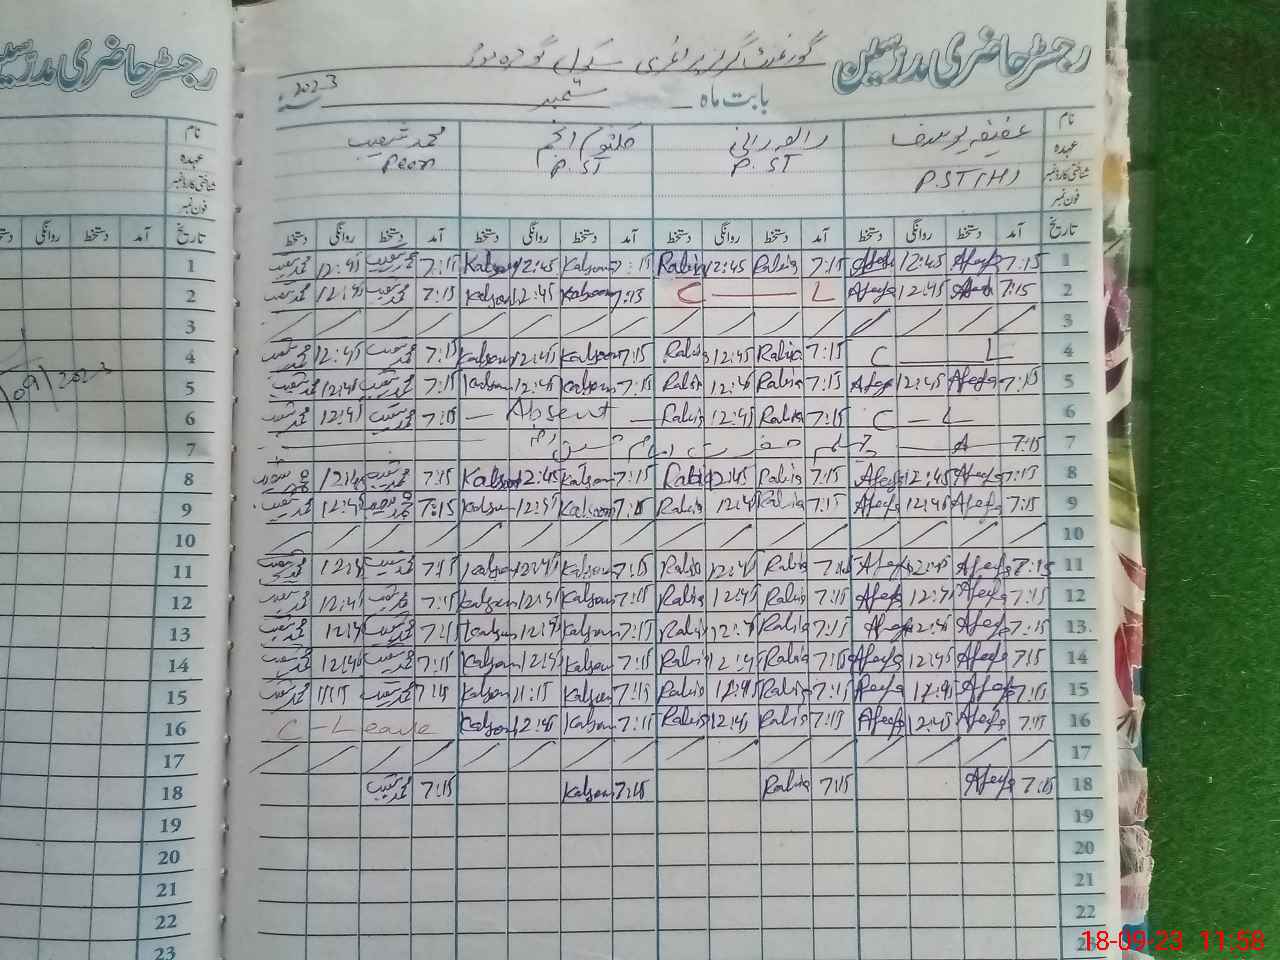 رجسٹر حاضری مدرسین
گورنمنٹ گرلز پرائمری سکول
بابت ماہ ستمبر 2023ء
نام عفیفہ یوسف رابعہ رانی کلثوم انجم محمد شعیب
عہدہ P.ST P.ST Peon
شناختی کارڈ نمبر P.ST(H)
فون نمبر
تاریخ آمد دستخط روانگی دستخط آمد دستخط روانگی دستخط آمد دستخط روانگی دستخط آمد دستخط روانگی دستخط
1 7:15 Afeefa 12:45 Afeefa 7:15 Rabia 12:45 Rabia 7:15 Kalsoom 12:45 Kalsoom 7:15 محمد شعیب 12:45 محمد شعیب 1
2 7:15 Afeefa 12:45 Afeefa C L 7:15 Kalsoom 12:45 Kalsoom 7:15 محمد شعیب 12:45 محمد شعیب 2
3 3
4 C L 7:15 Rabia 12:45 Rabia 7:15 Kalsoom 12:45 Kalsoom 7:15 محمد شعیب 12:45 محمد شعیب 4
5 7:15 Afeefa 12:45 Afeefa 7:15 Rabia 12:45 Rabia 7:15 Kalsoom 12:45 Kalsoom 7:15 محمد شعیب 12:45 محمد شعیب 5
6 C - L 7:15 Rabia 12:45 Rabia — Absent — 7:15 محمد شعیب 12:45 محمد شعیب 6
7 7:15 A چہلم حضرت امام حسین 7
8 7:15 Afeefa 12:45 Afeefa 7:15 Rabia 12:45 Rabia 7:15 Kalsoom 12:45 Kalsoom 7:15 محمد شعیب 12:45 محمد شعیب 8
9 7:15 Afeefa 12:45 Afeefa 7:15 Rabia 12:45 Rabia 7:15 Kalsoom 12:45 Kalsoom 7:15 محمد شعیب 12:45 محمد شعیب 9
10 10
11 7:15 Afeefa 12:45 Afeefa 7:15 Rabia 12:45 Rabia 7:15 Kalsoom 12:45 Kalsoom 7:15 محمد شعیب 12:45 محمد شعیب 11
12 7:15 Afeefa 12:45 Afeefa 7:15 Rabia 12:45 Rabia 7:15 Kalsoom 12:45 Kalsoom 7:15 محمد شعیب 12:45 محمد شعیب 12
13 7:15 Afeefa 12:45 Afeefa 7:15 Rabia 12:45 Rabia 7:15 Kalsoom 12:45 Kalsoom 7:15 محمد شعیب 12:45 محمد شعیب 13
14 7:15 Afeefa 12:45 Afeefa 7:15 Rabia 12:45 Rabia 7:15 Kalsoom 12:45 Kalsoom 7:15 محمد شعیب 12:45 محمد شعیب 14
15 7:15 Afeefa Afeefa 7:15 Rabia Rabia 7:15 Kalsoom 11:15 Kalsoom 7:15 محمد شعیب 11:15 محمد شعیب 15
16 7:15 Afeefa 12:45 Afeefa 7:15 Rabia 12:45 Rabia 7:15 Kalsoom 12:45 Kalsoom C - Leave 16
17 17
18 7:15 Afeefa 7:15 Rabia 7:15 Kalsoom 7:15 محمد شعیب 18
19 19
20 20
21 21
22 22
23
رجسٹر حاضری مدرسین
نام
عہدہ
شناختی کارڈ نمبر
فون نمبر
تاریخ آمد دستخط روانگی
2023
18-09-23 11:58